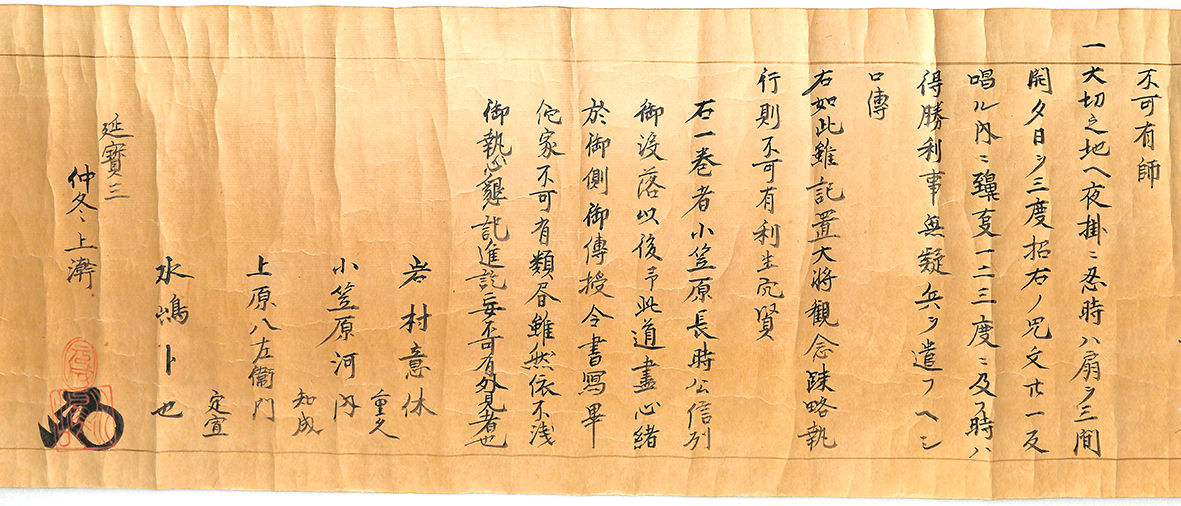 不可有師
一大切之地ヘ夜掛ニ忍時ハ扇ヲ三間
開夕日ヲ三度招右ノ咒文廿一反
唱ル内ニ鶏亥一二三度ニ及フ時ハ
得勝利事無疑兵ヲ遣フヘシ
口傳
右如此雖記置大将觀念踈略執
行則不可有利生穴賢
右一巻者小笠原長時公信列
御没落以後予此道盡心緒
於御側御傳授令書寫畢
佗家不可有類眉雖然依不浅
御執心懇望進訖妄不可有外見者也
岩村意休
重久
小笠原河内
知成
上原八左衞門
定宣
水嶋卜也
延寶三
仲冬上澣